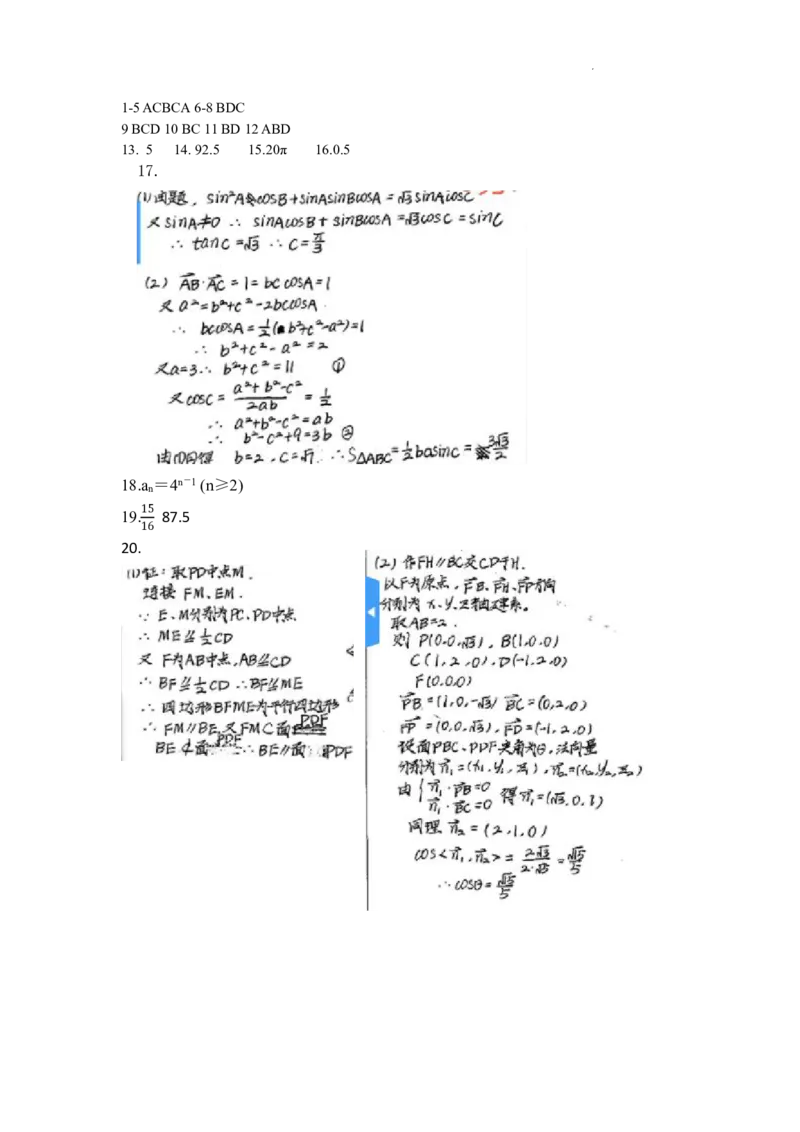 1-5 ACBCA 6-8 BDC
9 BCD 10 BC 11 BD 12 ABD
13. 5 14. 92.5 15.20π 16.0.5
17.
(1)由题, sin²AcosB+sinAsinBcosA=√3sinAcosC
又sinA≠0 ∴ sinAcosB+sinBcosA=√3cosC=sinC
∴ tanC=√3 ∴C=π/3
(2) AB·AC=1=bccosA=1
又a²=b²+c²-2bccosA
∴ bccosA=1/2(b²+c²-a²)=1
∴ b²+c²-a²=2
又a=3∴ b²+c²=11 ①
又cosC=(a²+b²-c²)/2ab=1/2
∴ a²+b²-c²=ab
∴ b²-c²+9=3b ②
由①②得 b=2,c=√7 ∴S△ABC=1/2basinC=3√3/2
18.aₙ=4ⁿ⁻¹ (n≥2)
19.15/16 87.5
20.
(1)证:取PD中点M.
连接FM、EM.
∵ E、M分别为PC、PD中点
∴ ME∥=1/2CD
又 F为AB中点,AB∥=CD
∴ BF∥=1/2CD ∴BF∥=ME
∴ 四边形BFME为平行四边形
∴ FM∥BE,又FM⊂面PDF
BE⊄面PDF ∴BE∥面PDF
(2)作FH∥BC交CD于H.
以F为原点,FB、FH、FP方向
分别为x、y、z轴建系。
取AB=2.
则 P(0,0,√3),B(1,0,0)
C(1,2,0),D(-1,2,0)
F(0,0,0)
PB=(1,0,-√3) BC=(0,2,0)
FP=(0,0,√3),FD=(-1,2,0)
设面PBC、PDF夹角为θ,法向量
分别为n₁=(x₁,y₁,z₁),n₂=(x₂,y₂,z₂)
由{n₁·PB=0 n₁·BC=0 得n₁=(√3,0,1)
同理n₂=(2,1,0)
cos<n₁,n₂>=2√3/2·√5=√15/5
∴cosθ=√15/5